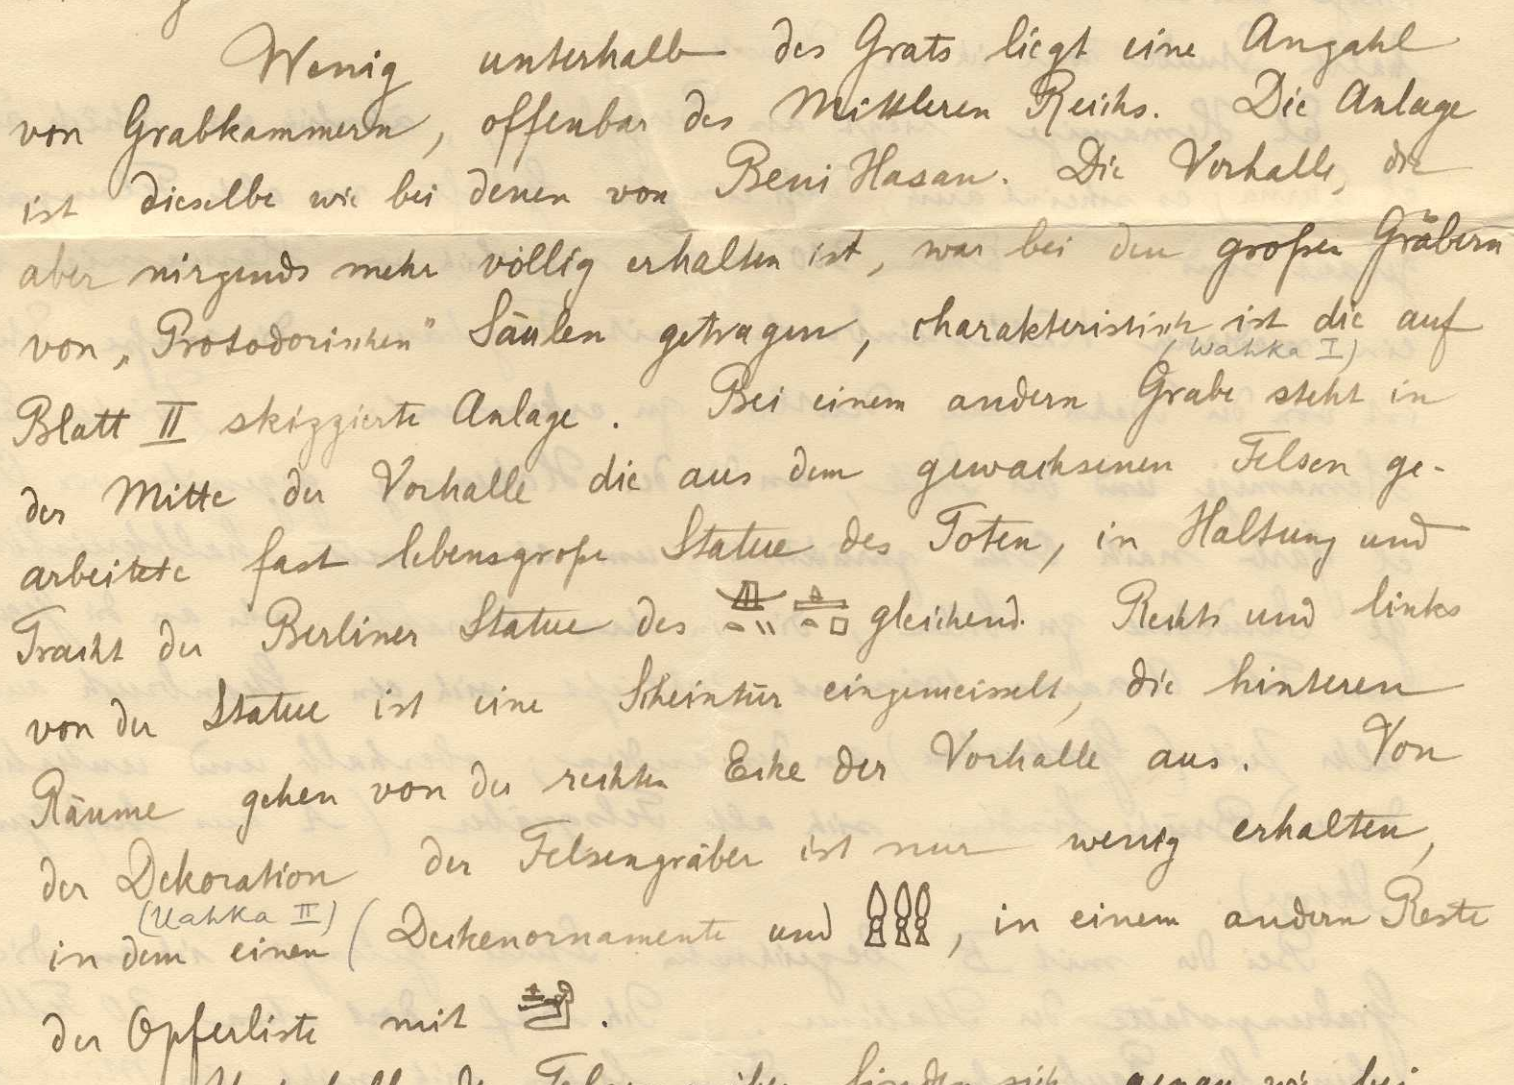 Wenig unterhalb des Grats liegt eine Anzahl
von Grabkammern, offenbar des Mittleren Reichs. Die Anlage
ist dieselbe wie bei denen von Beni Hasan. Die Vorhalle, die
aber nirgends mehr völlig erhalten ist, war bei den großen Gräbern
von „Protodorischen" Säulen getragen, charakteristisch ist die auf
(Wahka I)
Blatt II skizzierte Anlage. Bei einem andern Grabe steht in
der Mitte der Vorhalle die aus dem gewachsenen Felsen ge-
arbeitete fast lebensgroße Statue des Toten, in Haltung und
Tracht der Berliner Statue des gleichend. Rechts und links
von der Statue ist eine Scheintür eingemeisselt, die hinteren
Räume gehen von der rechten Ecke der Vorhalle aus. Von
der Dekoration der Felsengräber ist nur wenig erhalten,
(Uahka II)
in dem einen (Deckenornamente und , in einem andern Reste
der Opferliste mit .